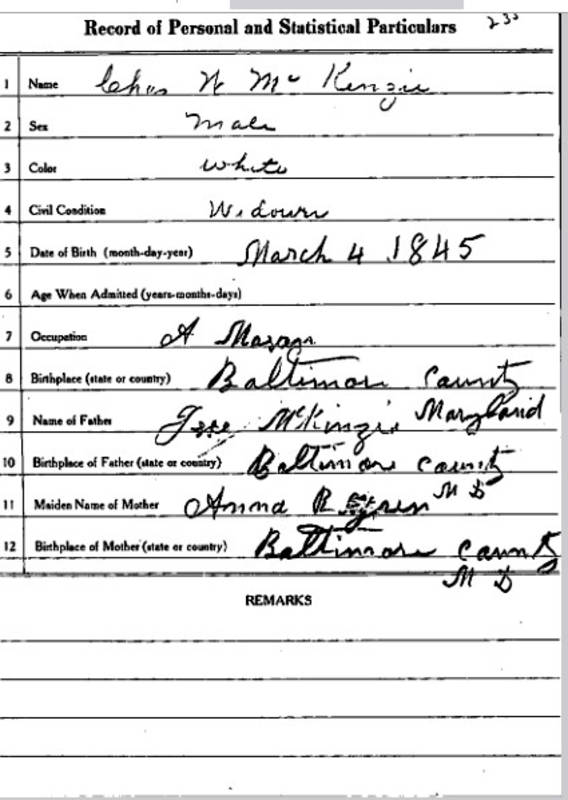 Record of Personal and Statistical Particulars 233
1 Name Chas W Mc Kenzie
2 Sex Male
3 Color White
4 Civil Condition Widower
5 Date of Birth (month-day-year) March 4 1845
6 Age When Admitted (years-months-days)
7 Occupation A Mason
8 Birthplace (state or country) Baltimore County
Maryland
9 Name of Father McKinzie
10 Birthplace of Father (state or country) Baltimore County
M D
11 Maiden Name of Mother Anna
12 Birthplace of Mother (state or country) Baltimore County
M D
REMARKS